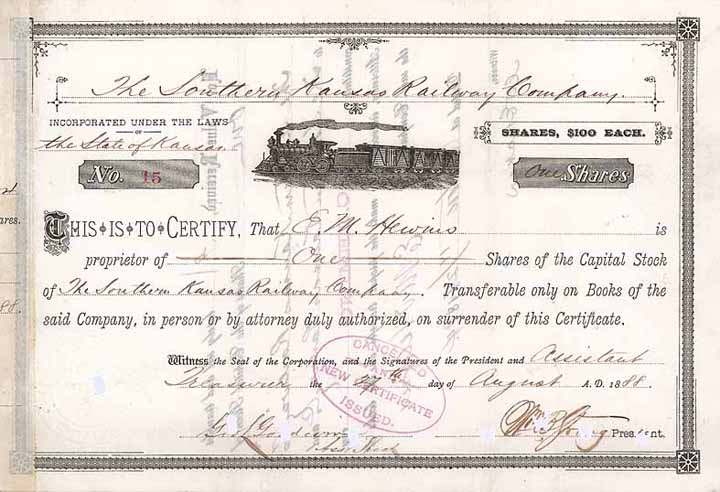 The Southern Kansas Railway Company.
INCORPORATED UNDER THE LAWS
OF
the State of Kansas
SHARES, $100 EACH.
No. 15
One Shares
THIS IS TO CERTIFY, That E. M. Hewins is
proprietor of One Shares of the Capital Stock
of The Southern Kansas Railway Company. Transferable only on Books of the
said Company, in person or by attorney duly authorized, on surrender of this Certificate.
Witness the Seal of the Corporation, and the Signatures of the President and Assistant
Treasurer the 27th day of August A.D. 1888.
CANCELLED
AND
NEW CERTIFICATE
ISSUED.
Goodwin
President.
ares.
88.